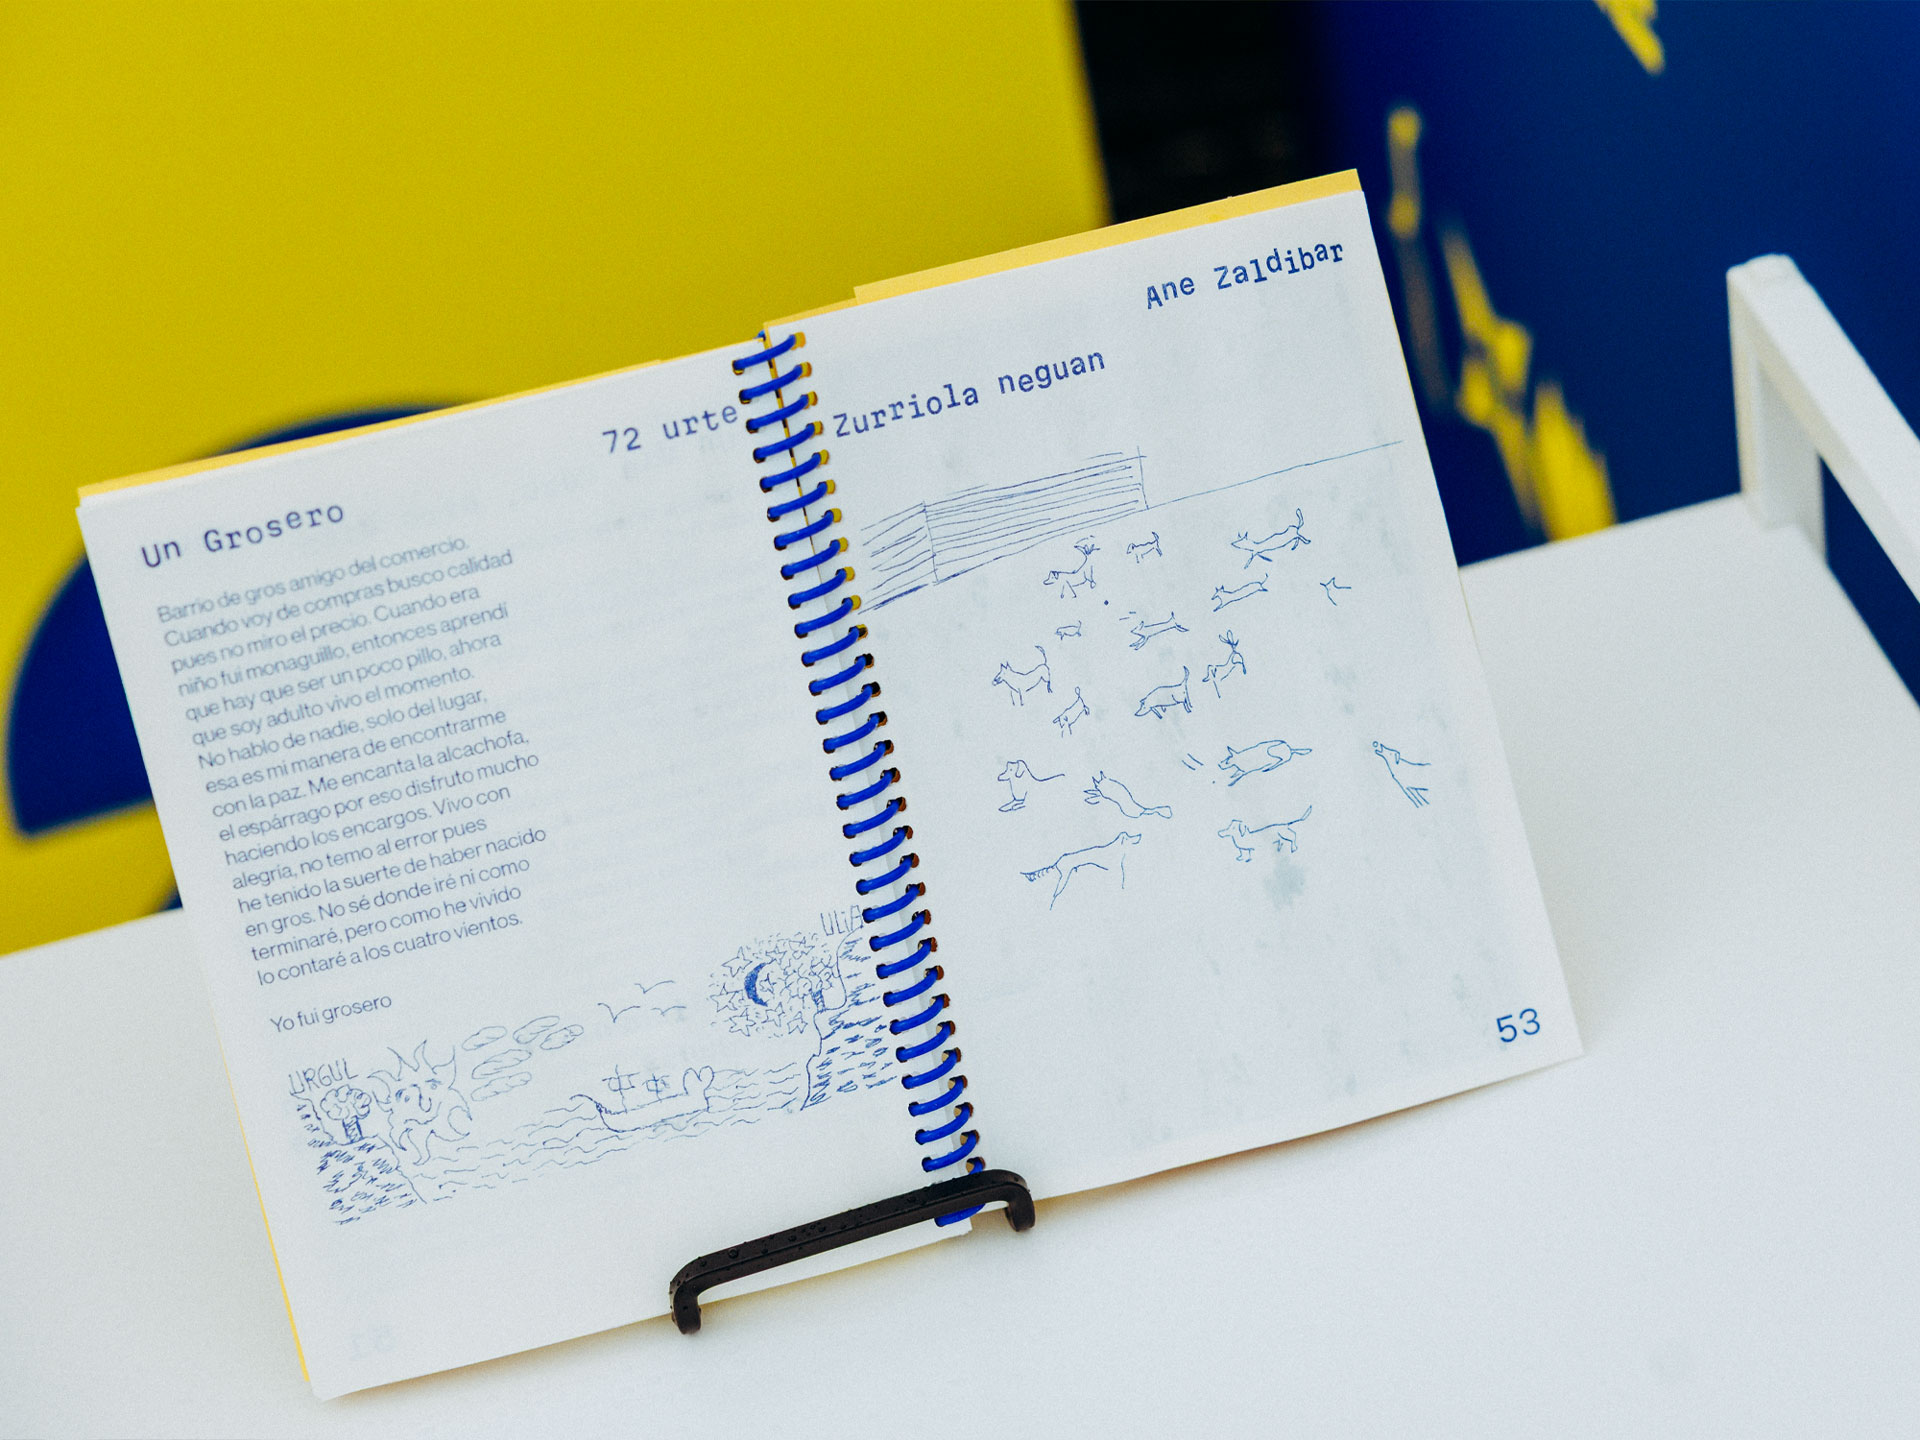 72 urte
Un Grosero
Barrio de gros amigo del comercio.
Cuando voy de compras busco calidad
pues no miro el precio. Cuando era
niño fui monaguillo, entonces aprendí
que hay que ser un poco pillo, ahora
que soy adulto vivo el momento.
No hablo de nadie, solo del lugar,
esa es mi manera de encontrarme
con la paz. Me encanta la alcachofa,
el espárrago por eso disfruto mucho
haciendo los encargos. Vivo con
alegría, no temo al error pues
he tenido la suerte de haber nacido
en gros. No sé donde iré ni como
terminaré, pero como he vivido
lo contaré a los cuatro vientos.
Yo fui grosero
ULiA
URGUL
Ane Zaldibar
Zurriola neguan
53